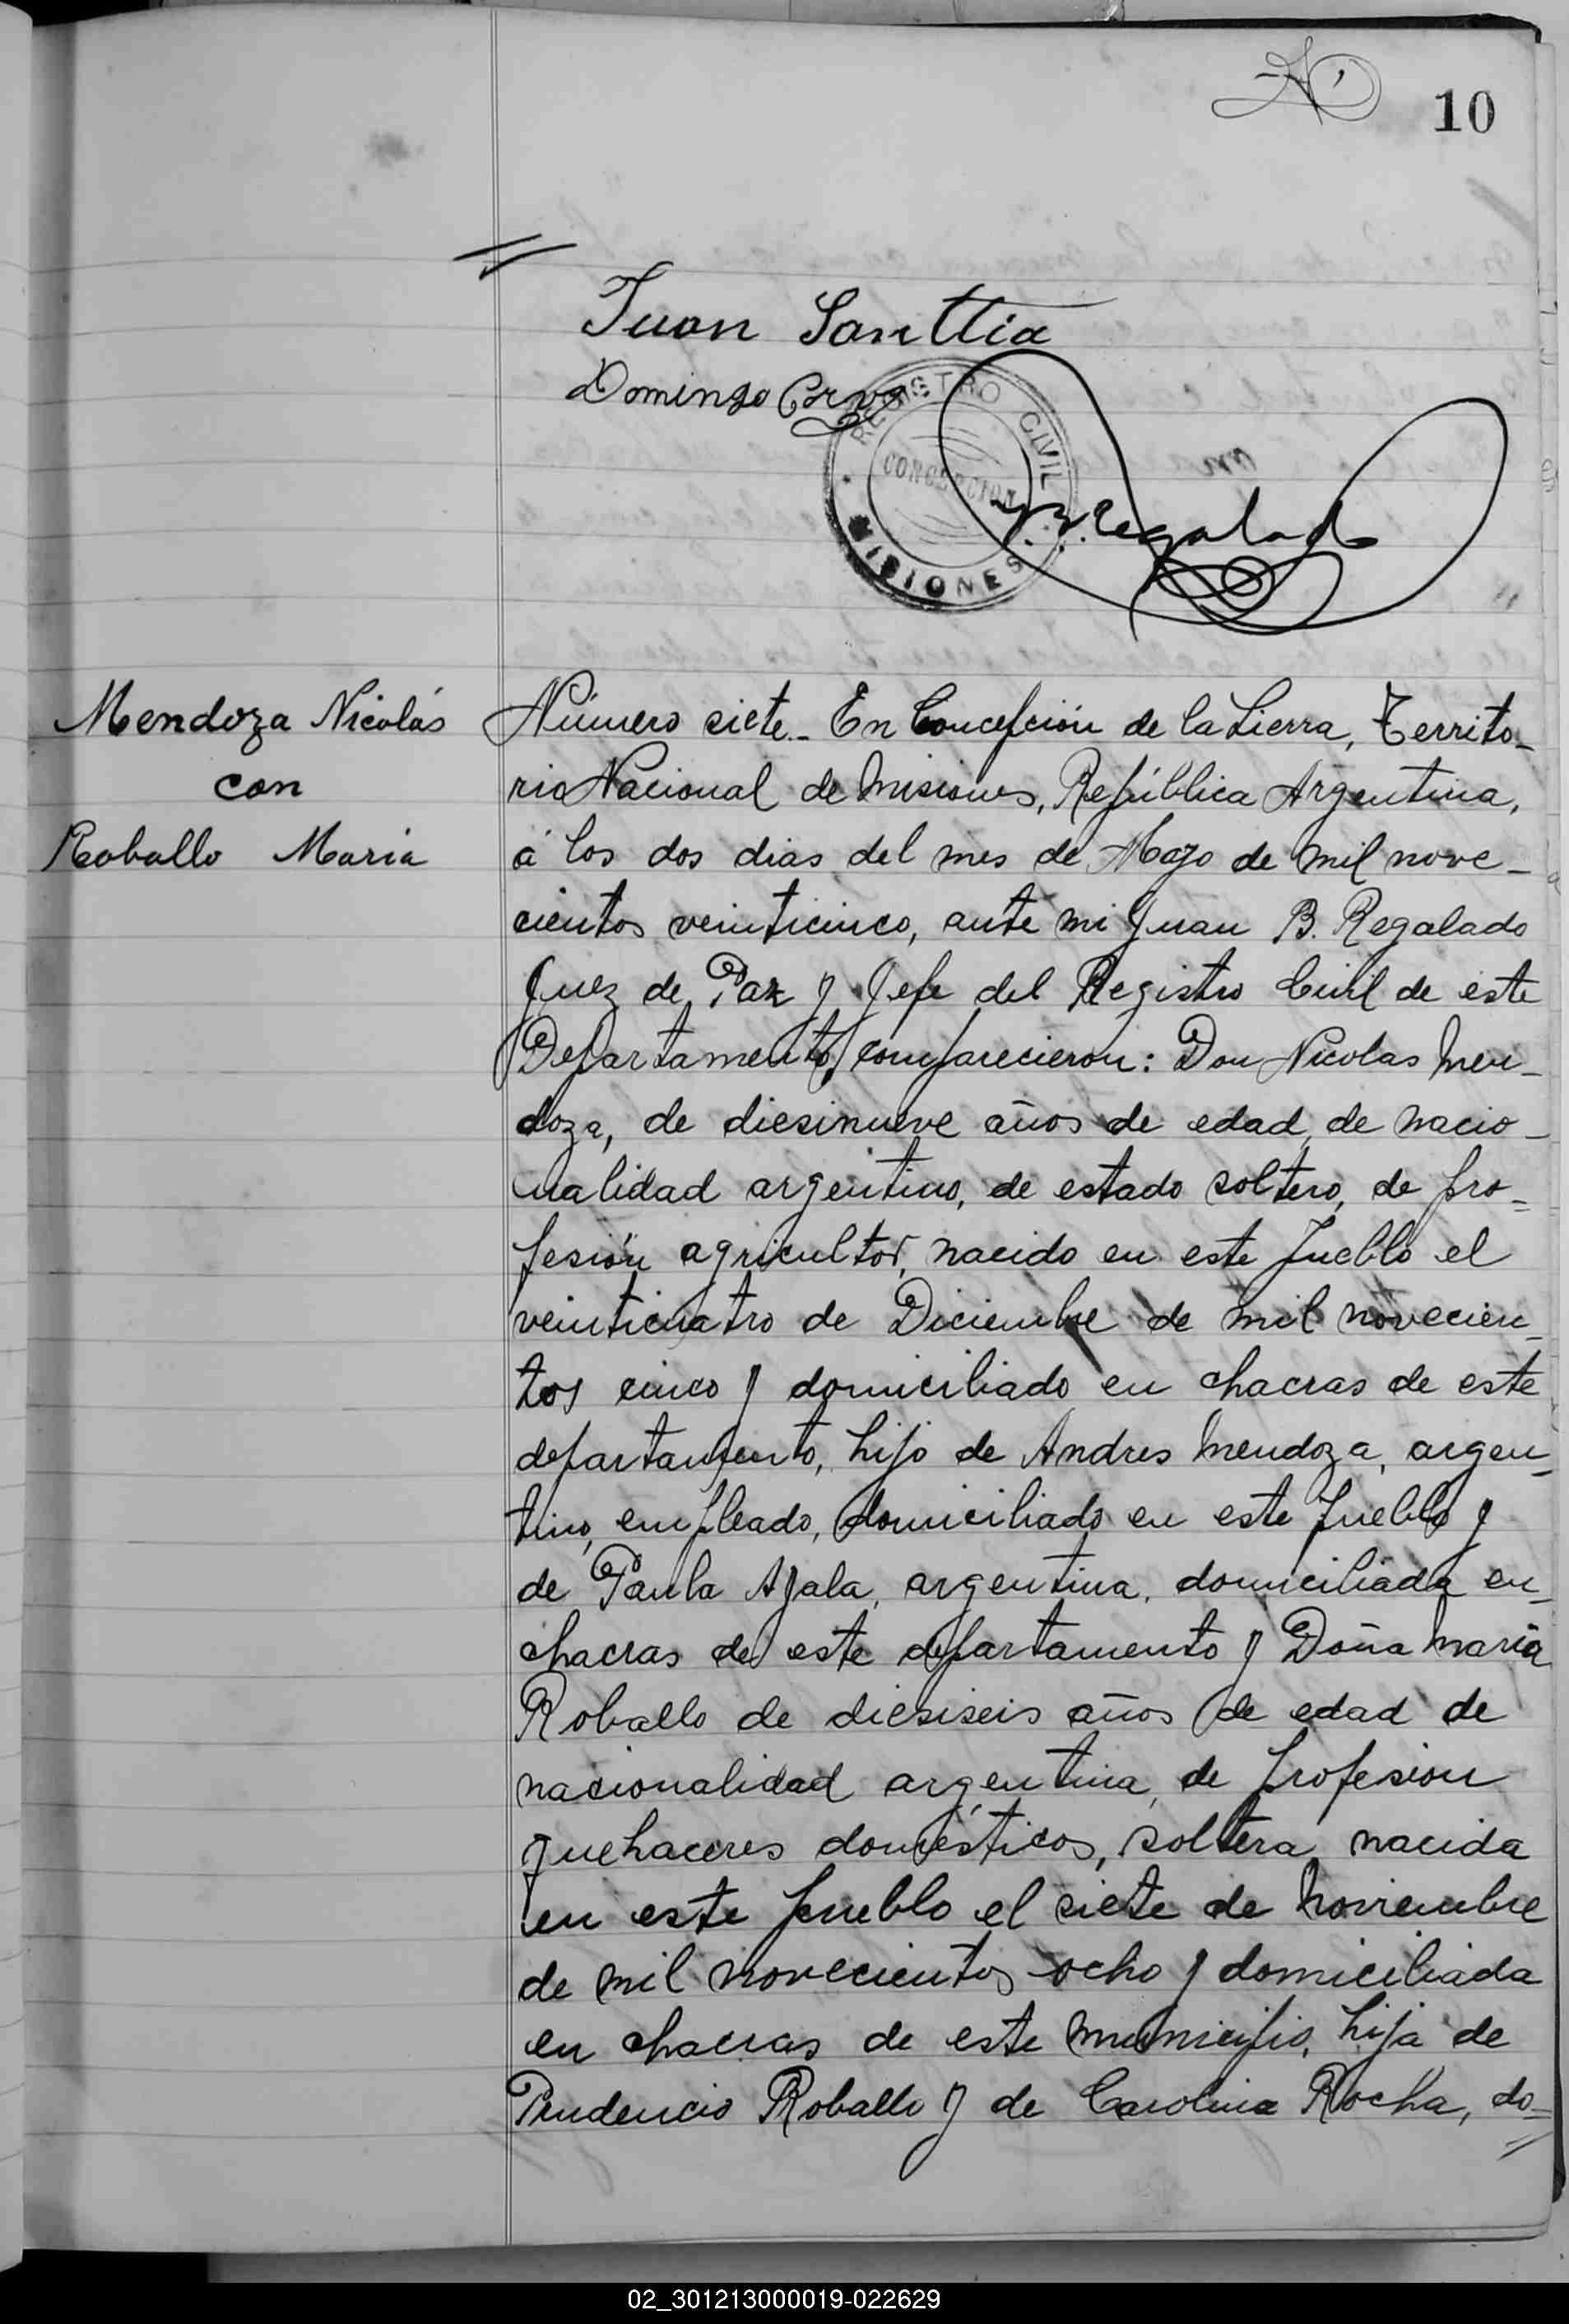 10
Juan Santtia
Domingo
REGISTRO CIVIL
CONCEPCION
MISIONES
J. B. Regalado
Mendoza Nicolás
con
Roballo Maria
Número siete.- En Concepción de la Sierra, Territo-
rio Nacional de Misiones, República Argentina,
á los dos dias del mes de Mayo de mil nove-
cientos veinticinco, ante mi Juan B. Regalado
Juez de Paz y Jefe del Registro Civil de este
Departamento, comparecieron: Don Nicolas Men-
doza, de diesinueve años de edad, de nacio-
nalidad argentino, de estado soltero, de pro-
fesión agricultor, nacido en este pueblo el
veinticuatro de Diciembre de mil novecien-
tos cinco y domiciliado en chacras de este
departamento, hijo de Andres Mendoza, argen-
tino, empleado, domiciliado en este pueblo y
de Paula Ayala, argentina, domiciliada en
chacras de este departamento y Doña Maria
Roballo de diesiseis años de edad de
nacionalidad argentina, de profesion
quehaceres domésticos, soltera, nacida
en este pueblo el siete de Noviembre
de mil novecientos ocho y domiciliada
en chacras de este municipio, hija de
Prudencio Roballo y de Carolina Rocha, do=
02_301213000019-022629